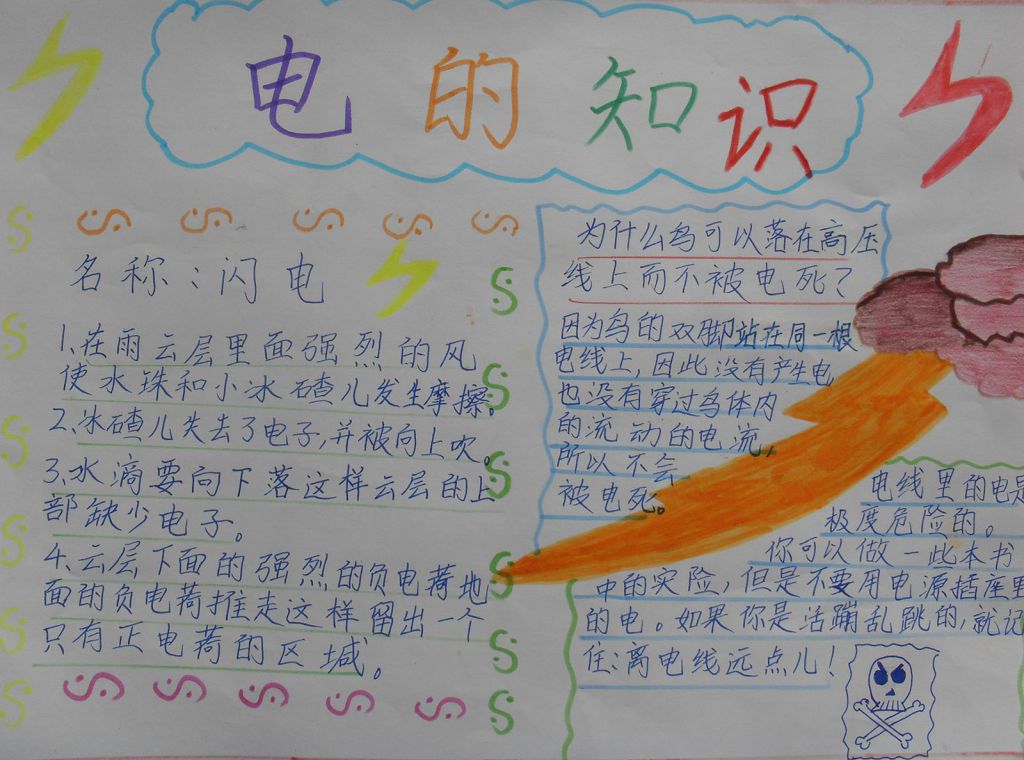 电的知识
名称:闪电
1、在雨云层里面强烈的风
使水珠和小冰碴儿发生摩擦。
2、冰碴儿失去了电子,并被向上吹。
3、水滴要向下落这样云层的上
部缺少电子。
4、云层下面的强烈的负电荷地
面的负电荷推走这样留出一个
只有正电荷的区域。
为什么鸟可以落在高压
线上而不被电死?
因为鸟的双脚站在同一根
电线上,因此没有产生电
也没有穿过鸟体内
的流动的电流,
所以不会
被电死。
电线里的电是
极度危险的。
你可以做一些本书
中的实险,但是不要用电源插座里
的电。如果你是活蹦乱跳的,就记
住:离电线远点儿!